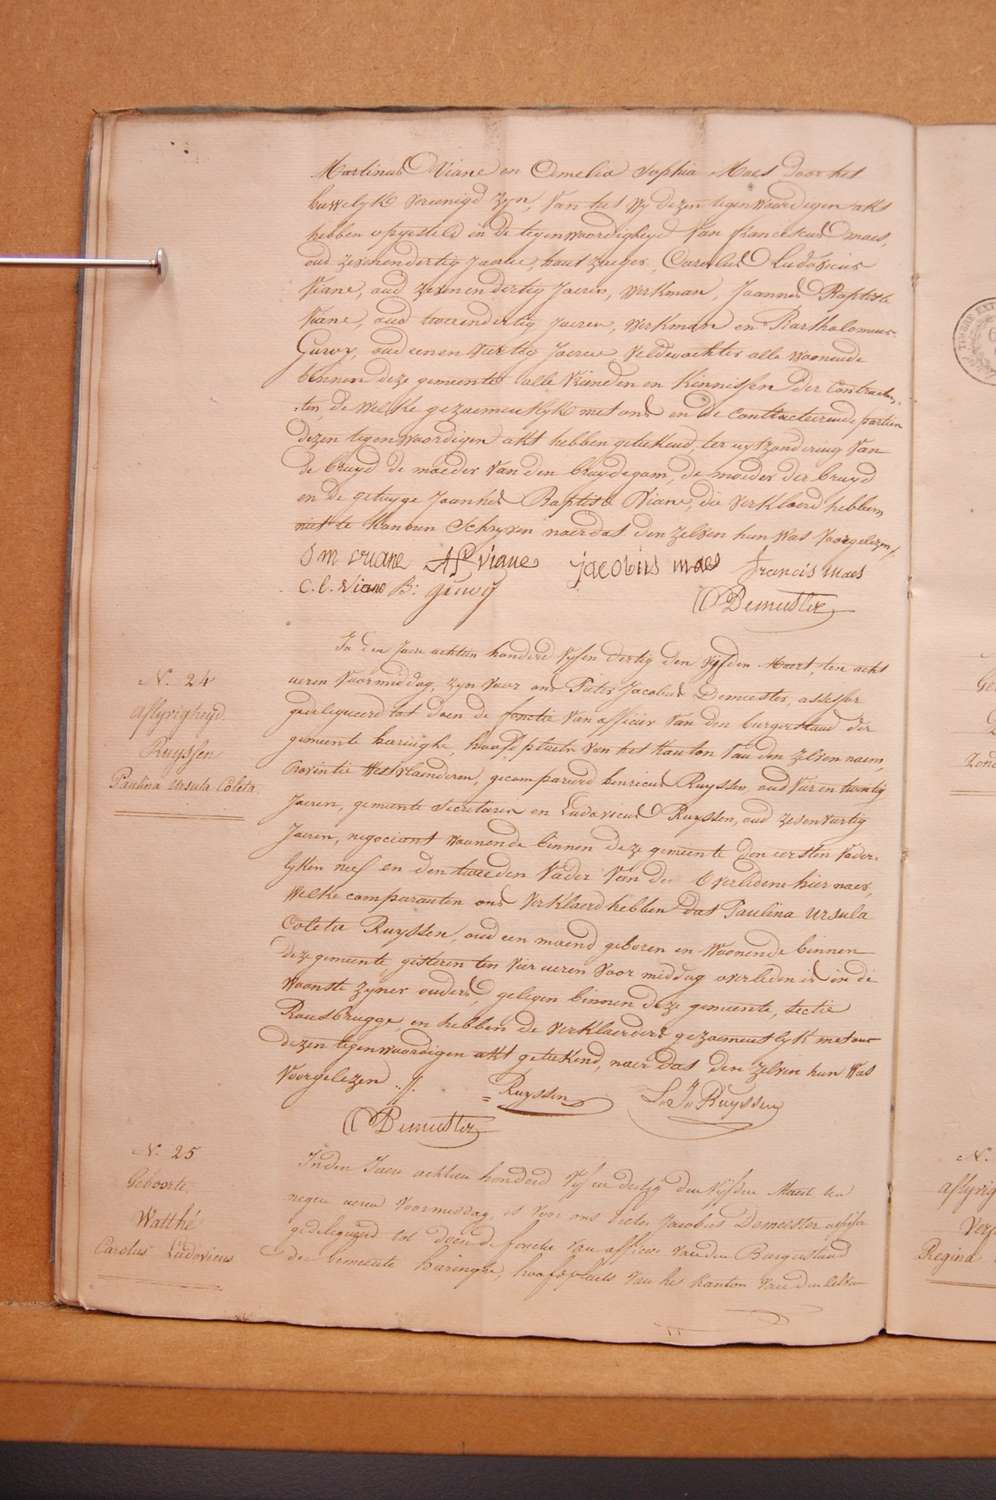 Martinus Viane en Amelia Sophia Maes door het
huwelyk vereenigd zyn, van het wy dezen tegenwoordigen akt
hebben opgesteld in de tegenwoordigheyd van franciscus maes,
oud zessendertig jaeren, hout zaeger, Carolus Ludovicus
Viane, oud zevenendertig Jaeren, werkman, Joannes Baptiste
Viane, oud tweendertig jaeren, werkman en Bartholomeus
Gurvy, oud eenen veertig Jaeren, veldwachter alle woonende
binnen deze gemeente alle vrienden en kinnissen der contractan-
-ten de welke gezaementlyk met ons en de contracteerende partien
dezen tegenwoordigen akt hebben geteekend, ter uytzondering van
de bruyd de moeder van den bruydegom, de moeder der bruyd
en de getuyge Joannes Baptiste Viane, die verklaerd hebben
niet te konnen schryven naerdat den zelven hun was voorgelezen
Viane Viane jacobus maes francis maes
C. L. viane B:
Demeester
In den Jaere achtien honderd vyfendertig den vyfden Maert, ten acht
N.º 24
ueren voormiddag, zyn voor ons Pieter Jacobus Demeester, assesser
aflyvigheyd
gedelegueerd tot doen de fonctie van officier van den burgerstaend der
Ruyssen
gemeente haringhe, hoofdplaets van het kanton van den zelven naem,
Paulina Ursula Coleta.
Provintie Westvlaenderen, gecompareerd henricus Ruyssen, oud vier en twintig
Jaeren, gemeente secretaris en Ludovicus Ruyssen, oud zesenveertig
Jaeren, negociant woonende binnen deze gemeente den eersten vader-
lyken neef en den tweeden vader van de overledene hier naer,
Welke comparanten ons verklaerd hebben dat Paulina Ursula
Coleta Ruyssen, oud een maend geboren en woonende binnen
deze gemeente gisteren ten vier ueren voor middag overleden is in de
woonste zyner ouders gelegen binnen deze gemeente, sectie
Rousbrugge, en hebben de verklaerders gezaementlyk met ons
dezen tegenwoordigen akt geteekend, naer dat den zelven hun was
voorgelezen
Ruyssen L. J. Ruyssen
Demeester
N.º 25
In den Jaere achtien honderd vyf en dertig den vyfden Maert ten
Geboorte
negen ueren voormiddag, is voor ons Pieter Jacobus Demeester assesser
Watthé
gedelegueerd tot doen de fonctie van officier van den Burgerstaend
Carolus Ludovicus
der Gemeente Haringhe, hoofdplaets van het kanton van den zelven